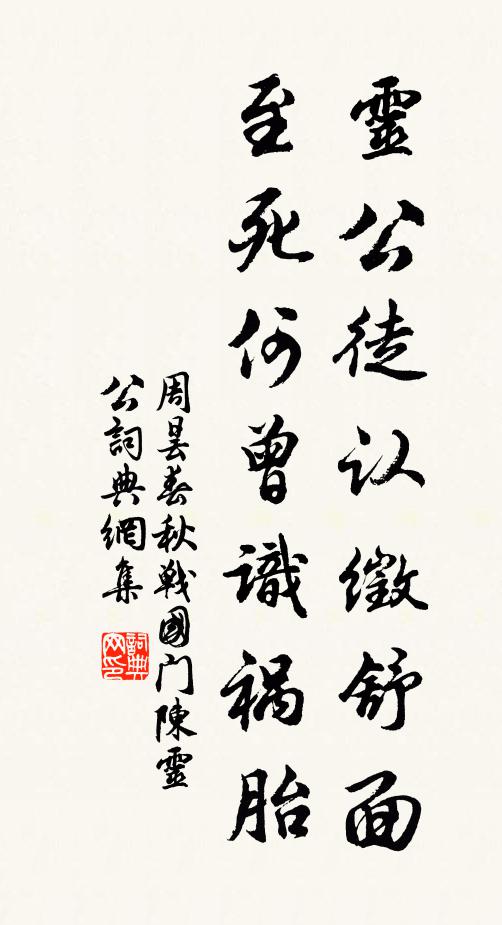 靈公徒认徵舒面
至死何曾識禍胎
周昙春秋戰國门陳靈
公詞典網集
詞典网印